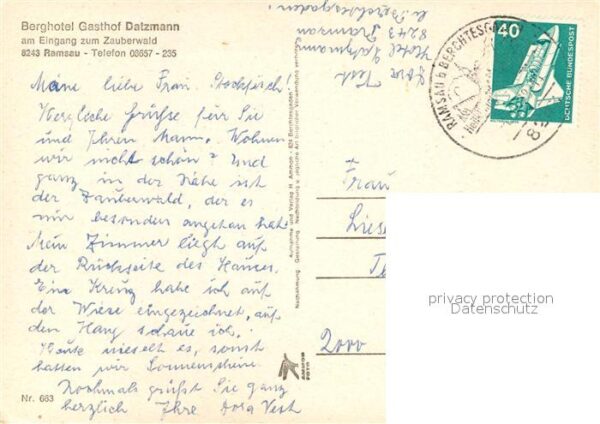 Berghotel Gasthof Datzmann
am Eingang zum Zauberwald
8243 Ramsau - Telefon 08657 - 235
Meine liebe Frau Stockfisch!
Herzliche Grüsse für Sie
und Ihren Mann. Wohnen
wir nicht schön? Und
ganz in der Nähe ist
der Zauberwald, der es
mir besonders angetan hat.
Mein Zimmer liegt auf
der Rückseite des Hauses.
Ein Kreuz habe ich auf
der Wiese eingezeichnet, auf
den Hang schaue ich.
Heute nieselt es, sonst
hatten wir Sonnenschein.
Nochmals grüßt Sie ganz
herzlich Ihre Dora Vest
Nr. 663
Dora Vest
Hotel Datzmann
8243 Ramsau
b. Berchtesgaden
Aufnahme und Verlag H. Ammon - 824 Berchtesgaden
AMMON
FOTO
RAMSAU b BERCHTESG
40
DEUTSCHE BUNDESPOST
Frau
Liese
2000
privacy protection
Datenschutz